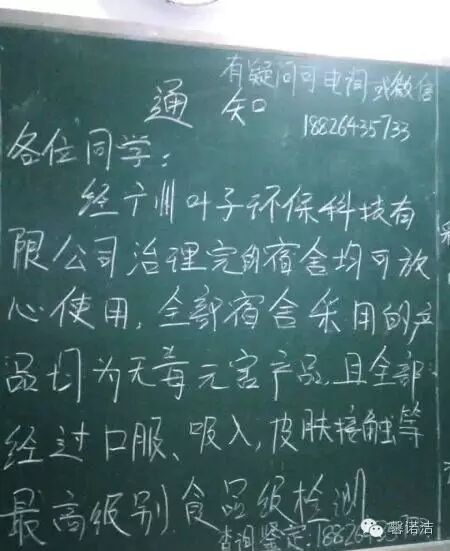 有疑问可电询或微信
18826435733
通知
各位同学:
经广州叶子环保科技有
限公司治理完的宿舍均可放
心使用,全部宿舍采用的产
品均为无毒无害产品,且全部
经过口服、吸入,皮肤接触等
最高级别食品级检测
查询鉴定:18826
馨诺洁